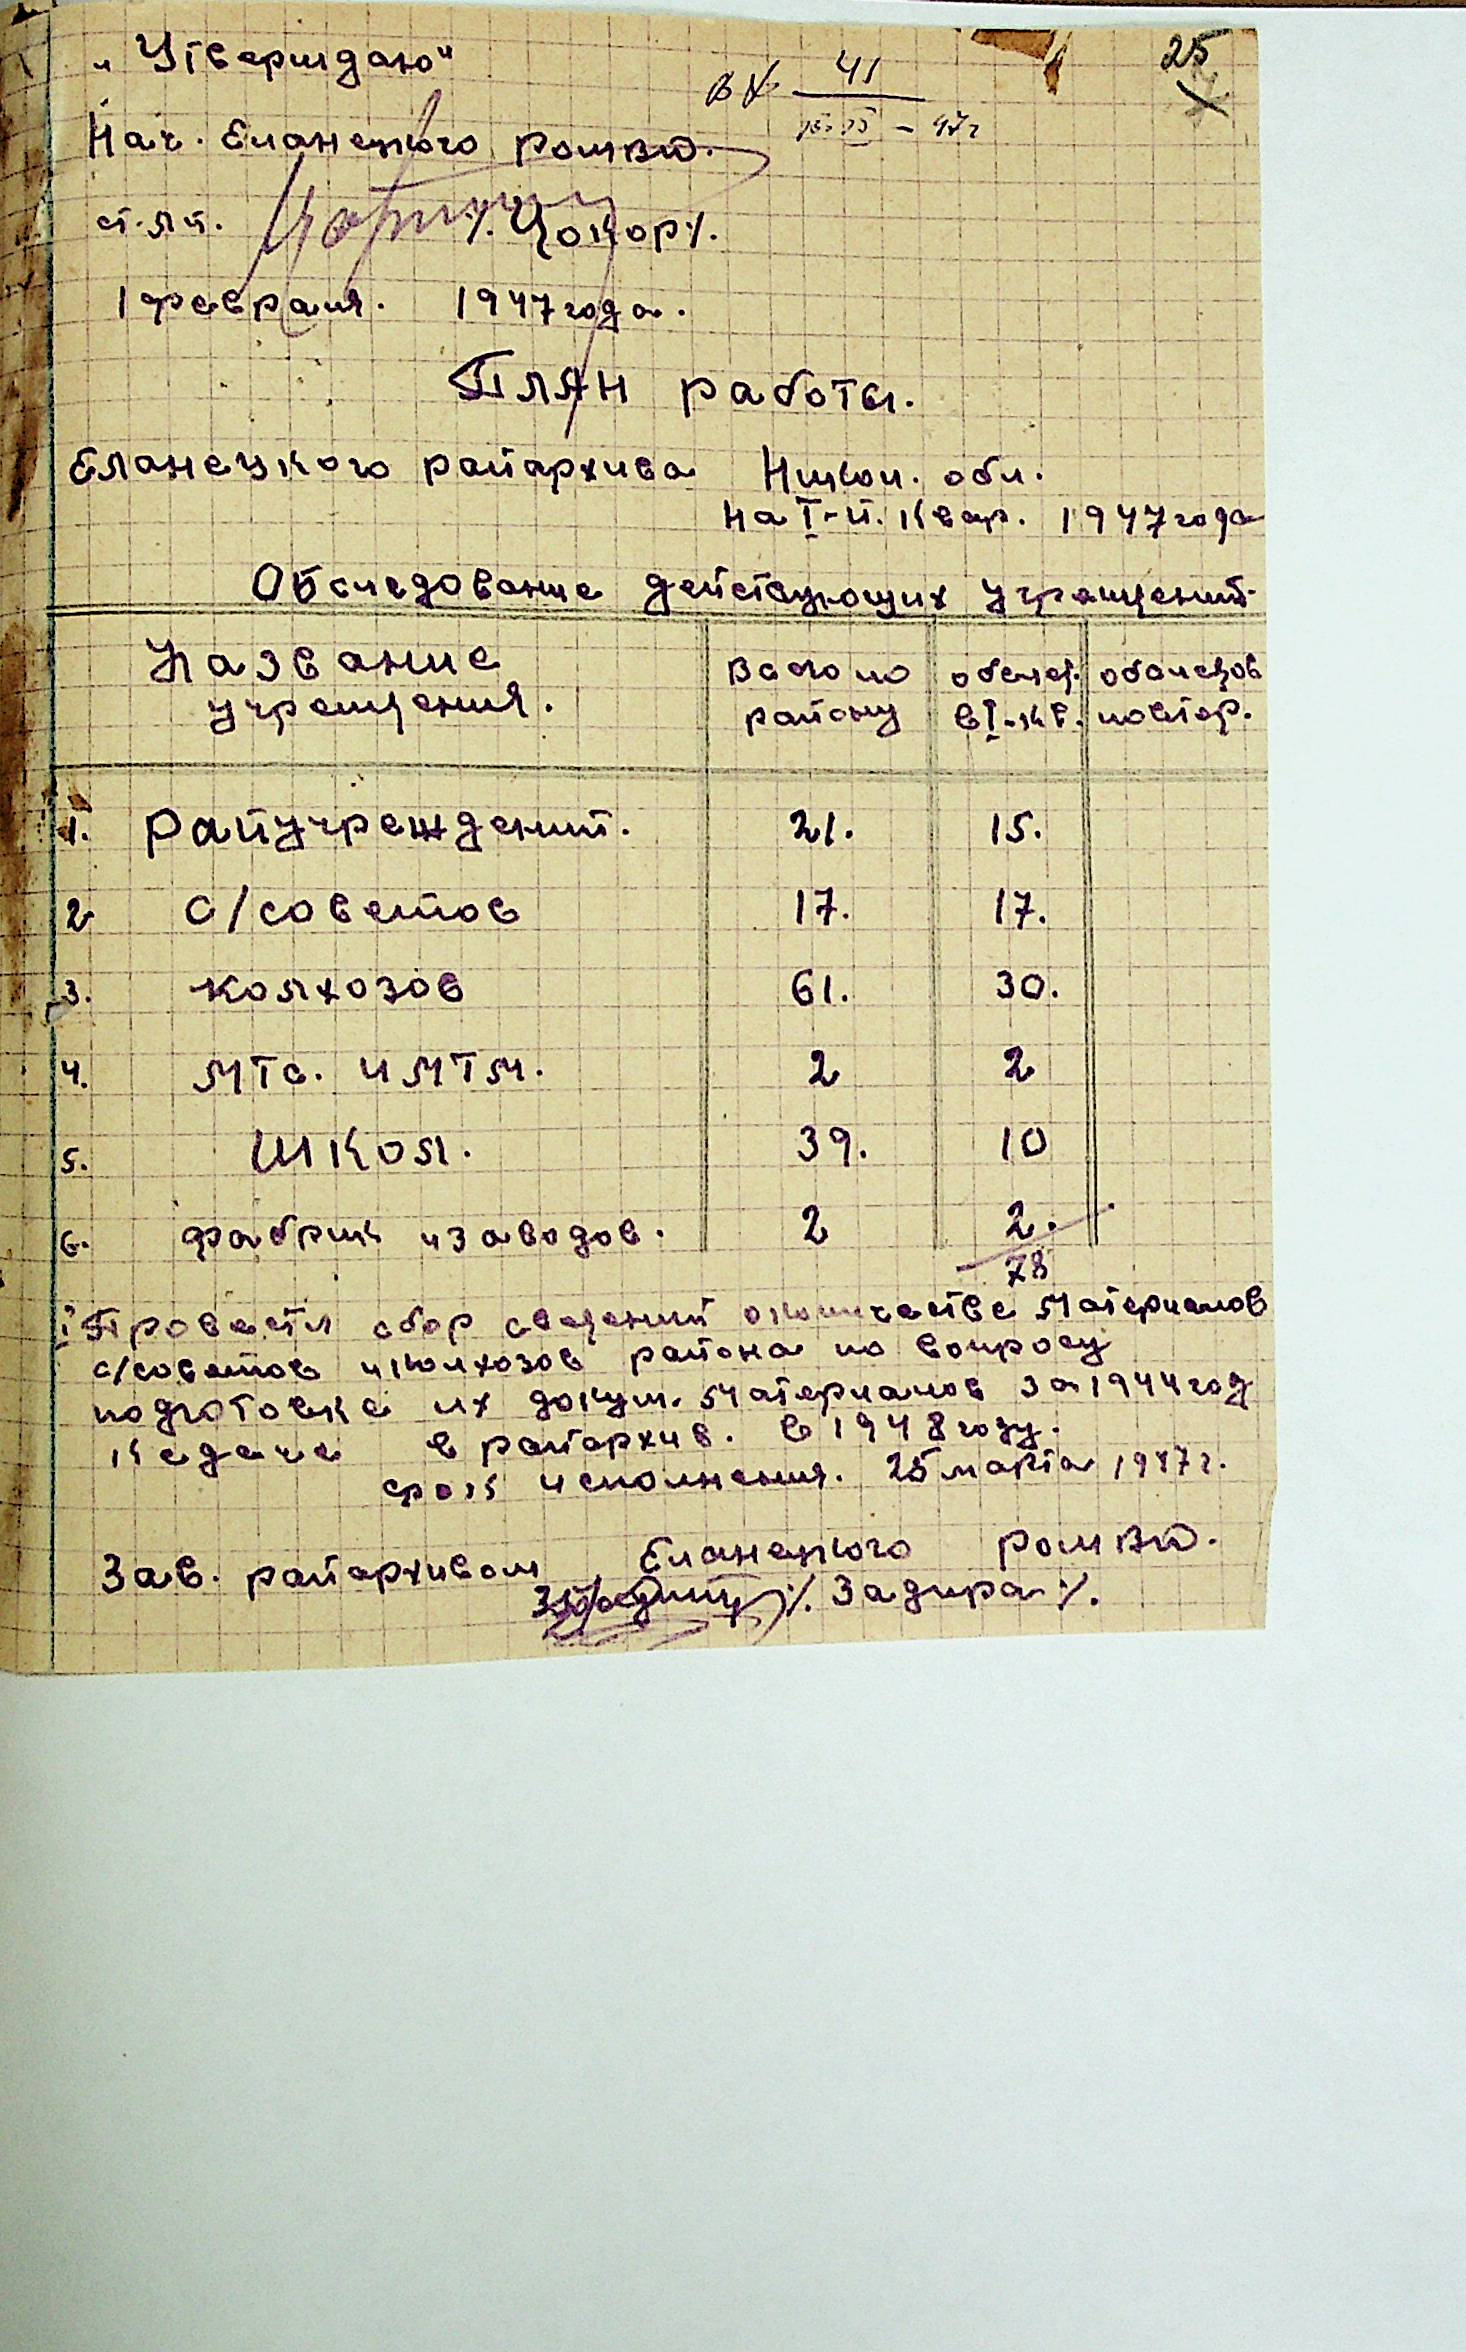 „Утверждаю“
вх 41
25
Нач. Еланецкого РОМВД.
– 47г
ст. лт. /. Цокор /.
1 февраля. 1947 года.
План работы.
Еланецкого райархива Никол. обл.
на I-й. квар. 1947 года
Обследование действующих учреждений.
Название Всего по обслед. обследов
учреждения. району в I-кв. повтор.
1. Райучреждений. 21. 15.
2 с/советов 17. 17.
3. колхозов 61. 30.
4. МТС. и МТМ. 2 2
5. Школ. 39. 10
6. Фабрик и заводов. 2 2.
78
Провести сбор сведений о количестве материалов
с/советов и колхозов района по вопросу
подготовке их докум. материалов за 1944 год
к сдаче в райархив. в 1948 году.
срок исполнения. 25 марта 1947 г.
Зав. райархивом Еланецкого РОМВД.
/. Задира /.